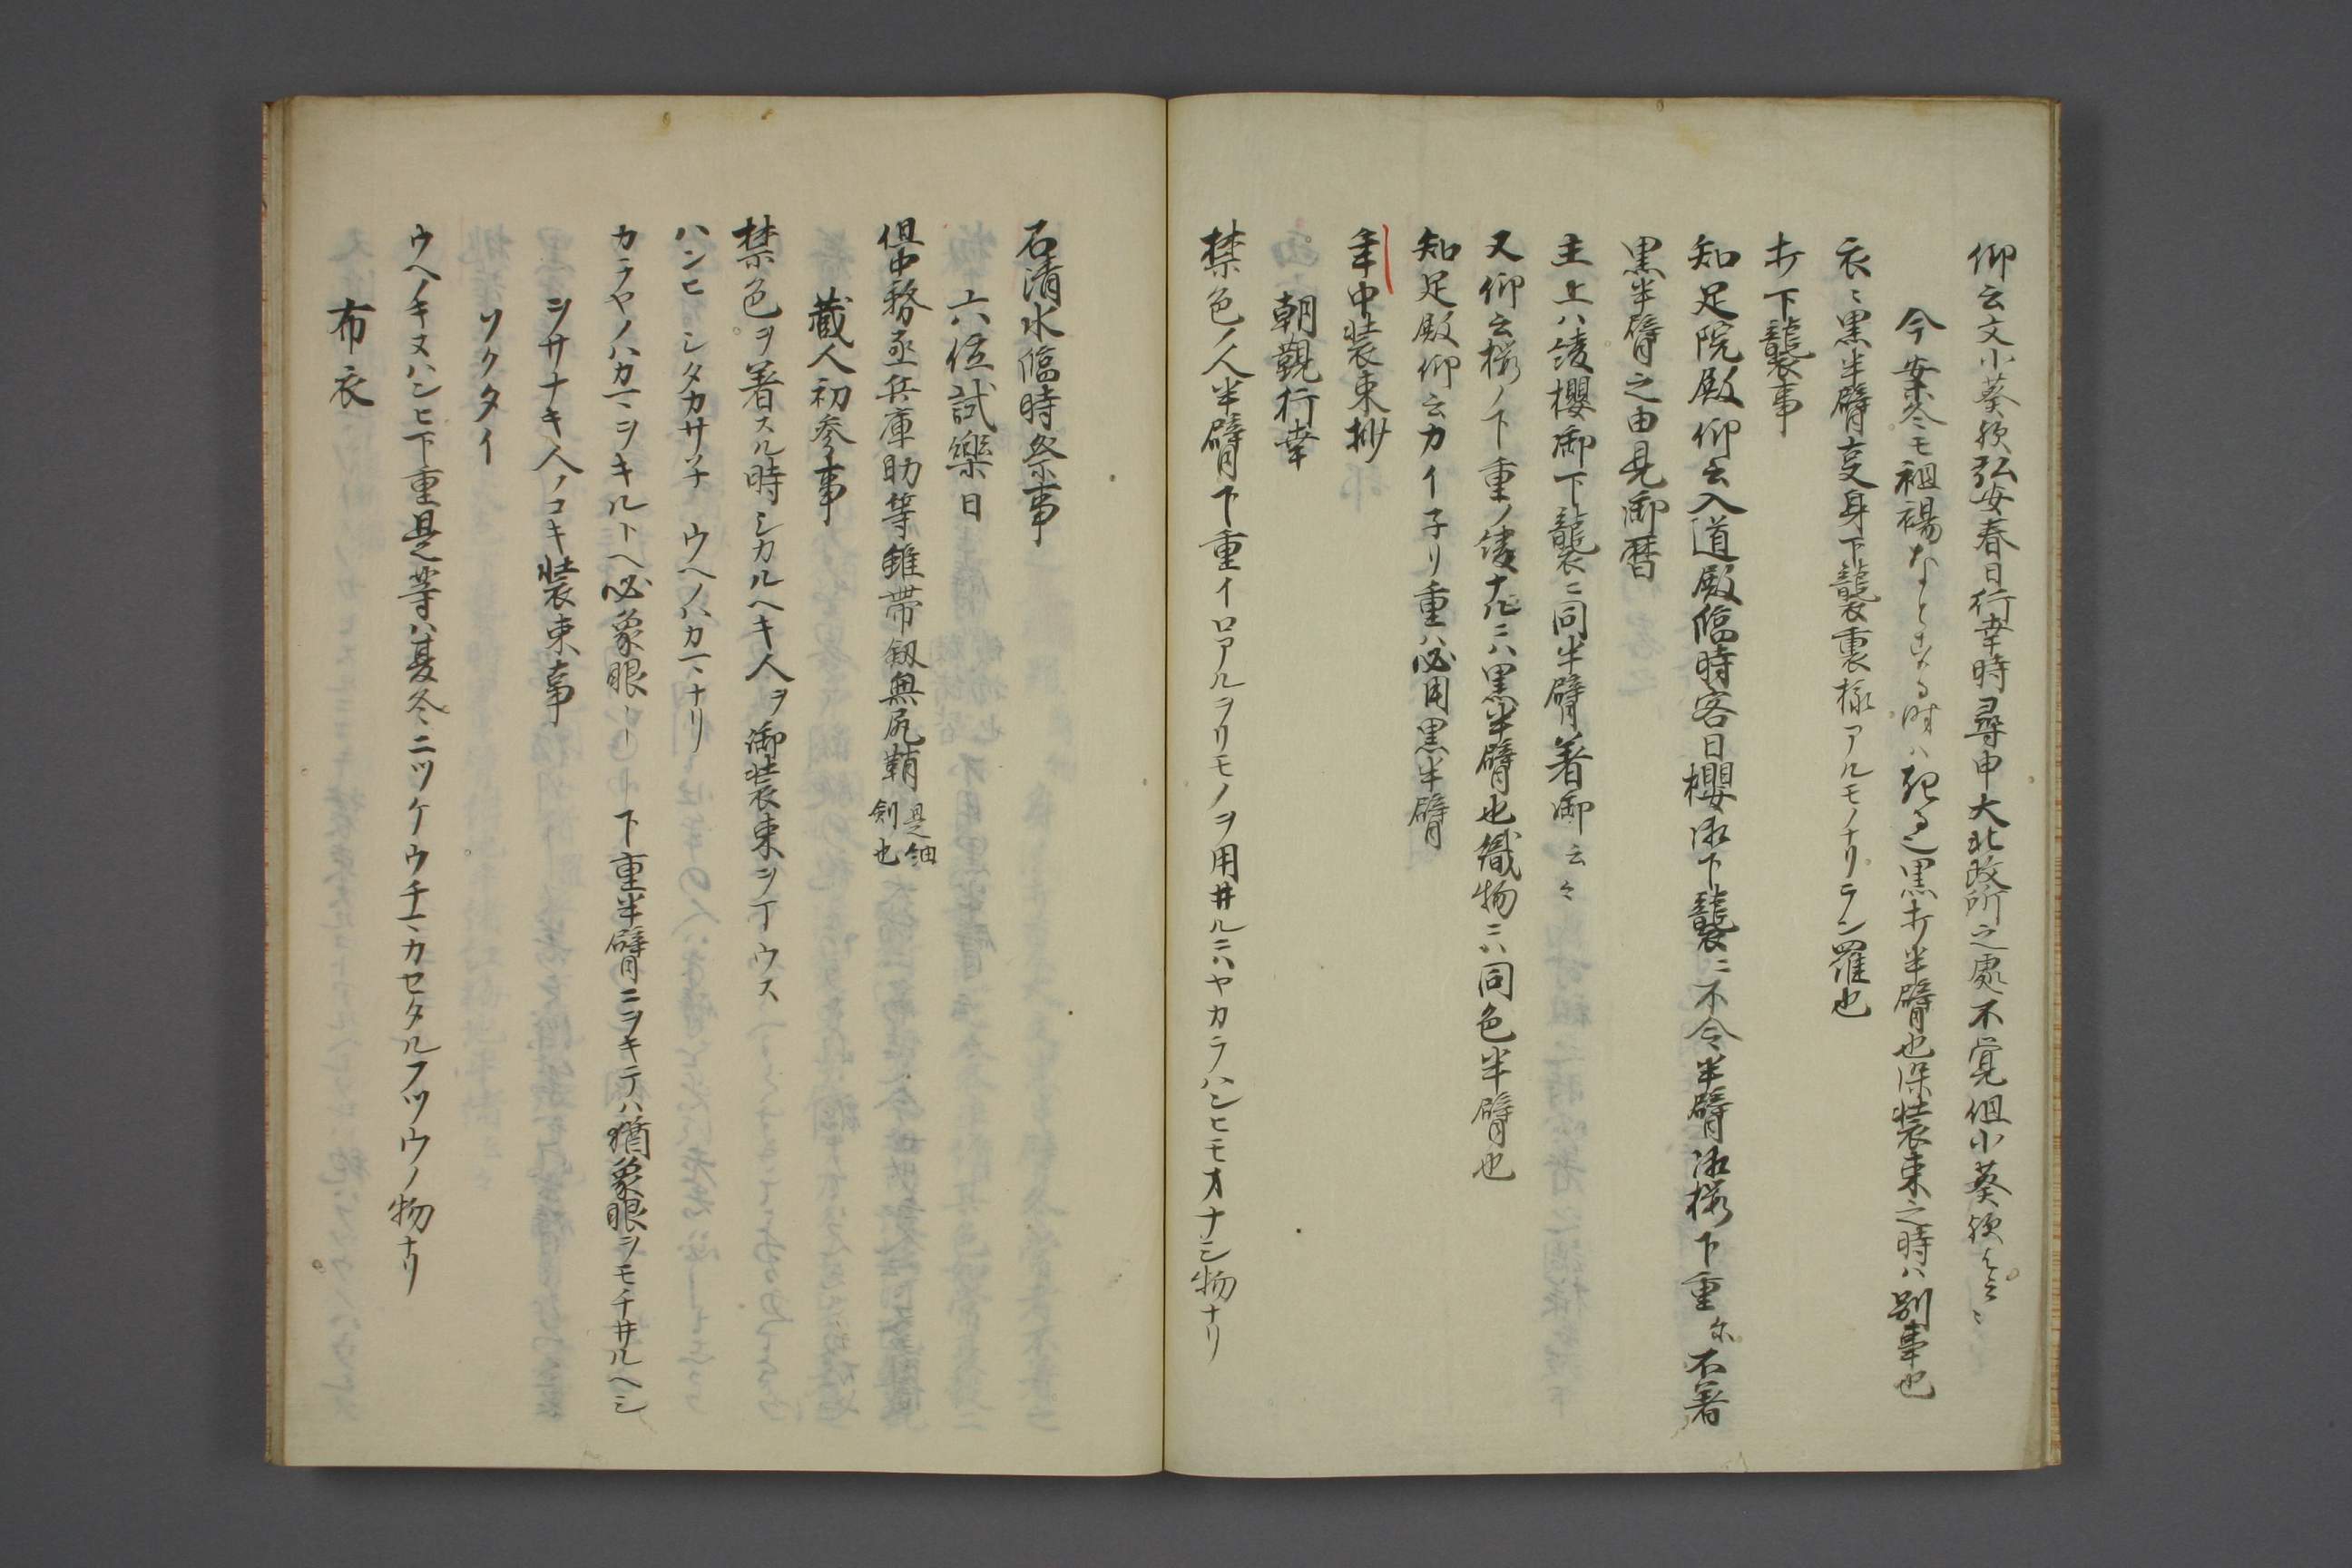 仰云文小葵歟弘安春日行幸時尋申大北政所之處不覚但小葵歟
今案冬モ袒裼なと
黒打半臂也染装束之時ハ別事也
衣ニ黒半臂
身下襲裏様アルモノナリラン羅也
打下襲事
知足院殿仰云入道殿臨時客日櫻
下襲ニ不令半臂
桜下重
不著
黒半臂之由見御暦
主上ハ綾櫻御下襲ニ同半臂著御云々
又仰云桜ノ下重ノ綾ナルニハ黒半臂也織物ニハ同色半臂也
知足殿仰云カイ子リ重ハ必用黒半臂
年中装束抄
朝覲行幸
禁色ノ人半臂下重イロアルヲリモノヲ用井ルニハヤカラハンヒモオナシ物ナリ
石清水臨時祭事
六位試樂日
但中務丞兵庫助等雖帯釼無尻鞘是細釼也
蔵人初参事
禁色ヲ著スル時シカルヘキ人ヲ御装束ヲ
ウス
ハンヒ シタカサ子 ウヘノハカマナリ
カラヤノハカマヲキルトヘ必象眼
下重半臂ニヲキテハ猶象眼ヲモチ井ルヘシ
ヲサナキ人ノコキ装束事
ソクタイ
ウヘノキヌハンヒ下重是等ハ夏冬ニツケウチマカセタルフツウノ物ナリ
布衣